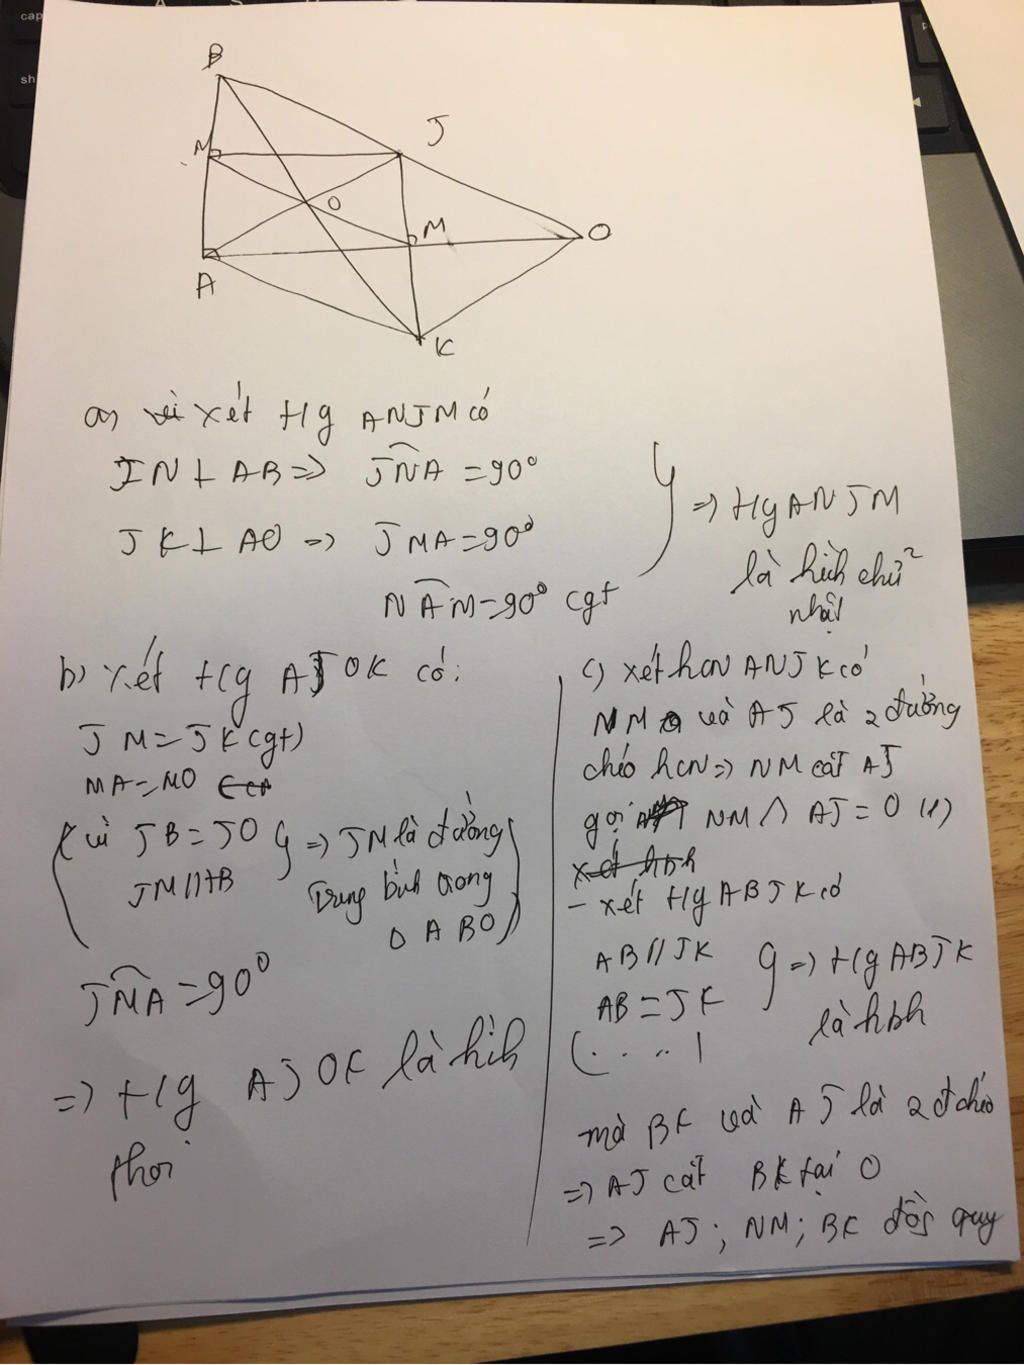 B
N
J
O
M
O
A
K
a) xét tứ g ANJM có
JN ⊥ AB => JNA = 90°
JK ⊥ AO => JMA = 90°
NAM = 90° (gt
} => tứ g ANJM
là hình chữ
nhật
b) xét tứ g AJOK có:
JM = JK (gt)
MA = MO
( vì JB = JO } => JM là đường
JM // AB
trung bình trong
Δ ABO )
JMA = 90°
=> tứ g AJOK là hình
thoi
c) xét hcn ANJK có
NM và AJ là 2 đường
chéo hcn => NM cắt AJ
gọi NM ∧ AJ = O (1)
xét hbh
- xét tứ g ABJK có
AB // JK
AB = JK
} => tứ g ABJK
là hbh
( . . . . )
mà BK và AJ là 2 đ chéo
=> AJ cắt BK tại O
=> AJ ; NM ; BK đồng quy